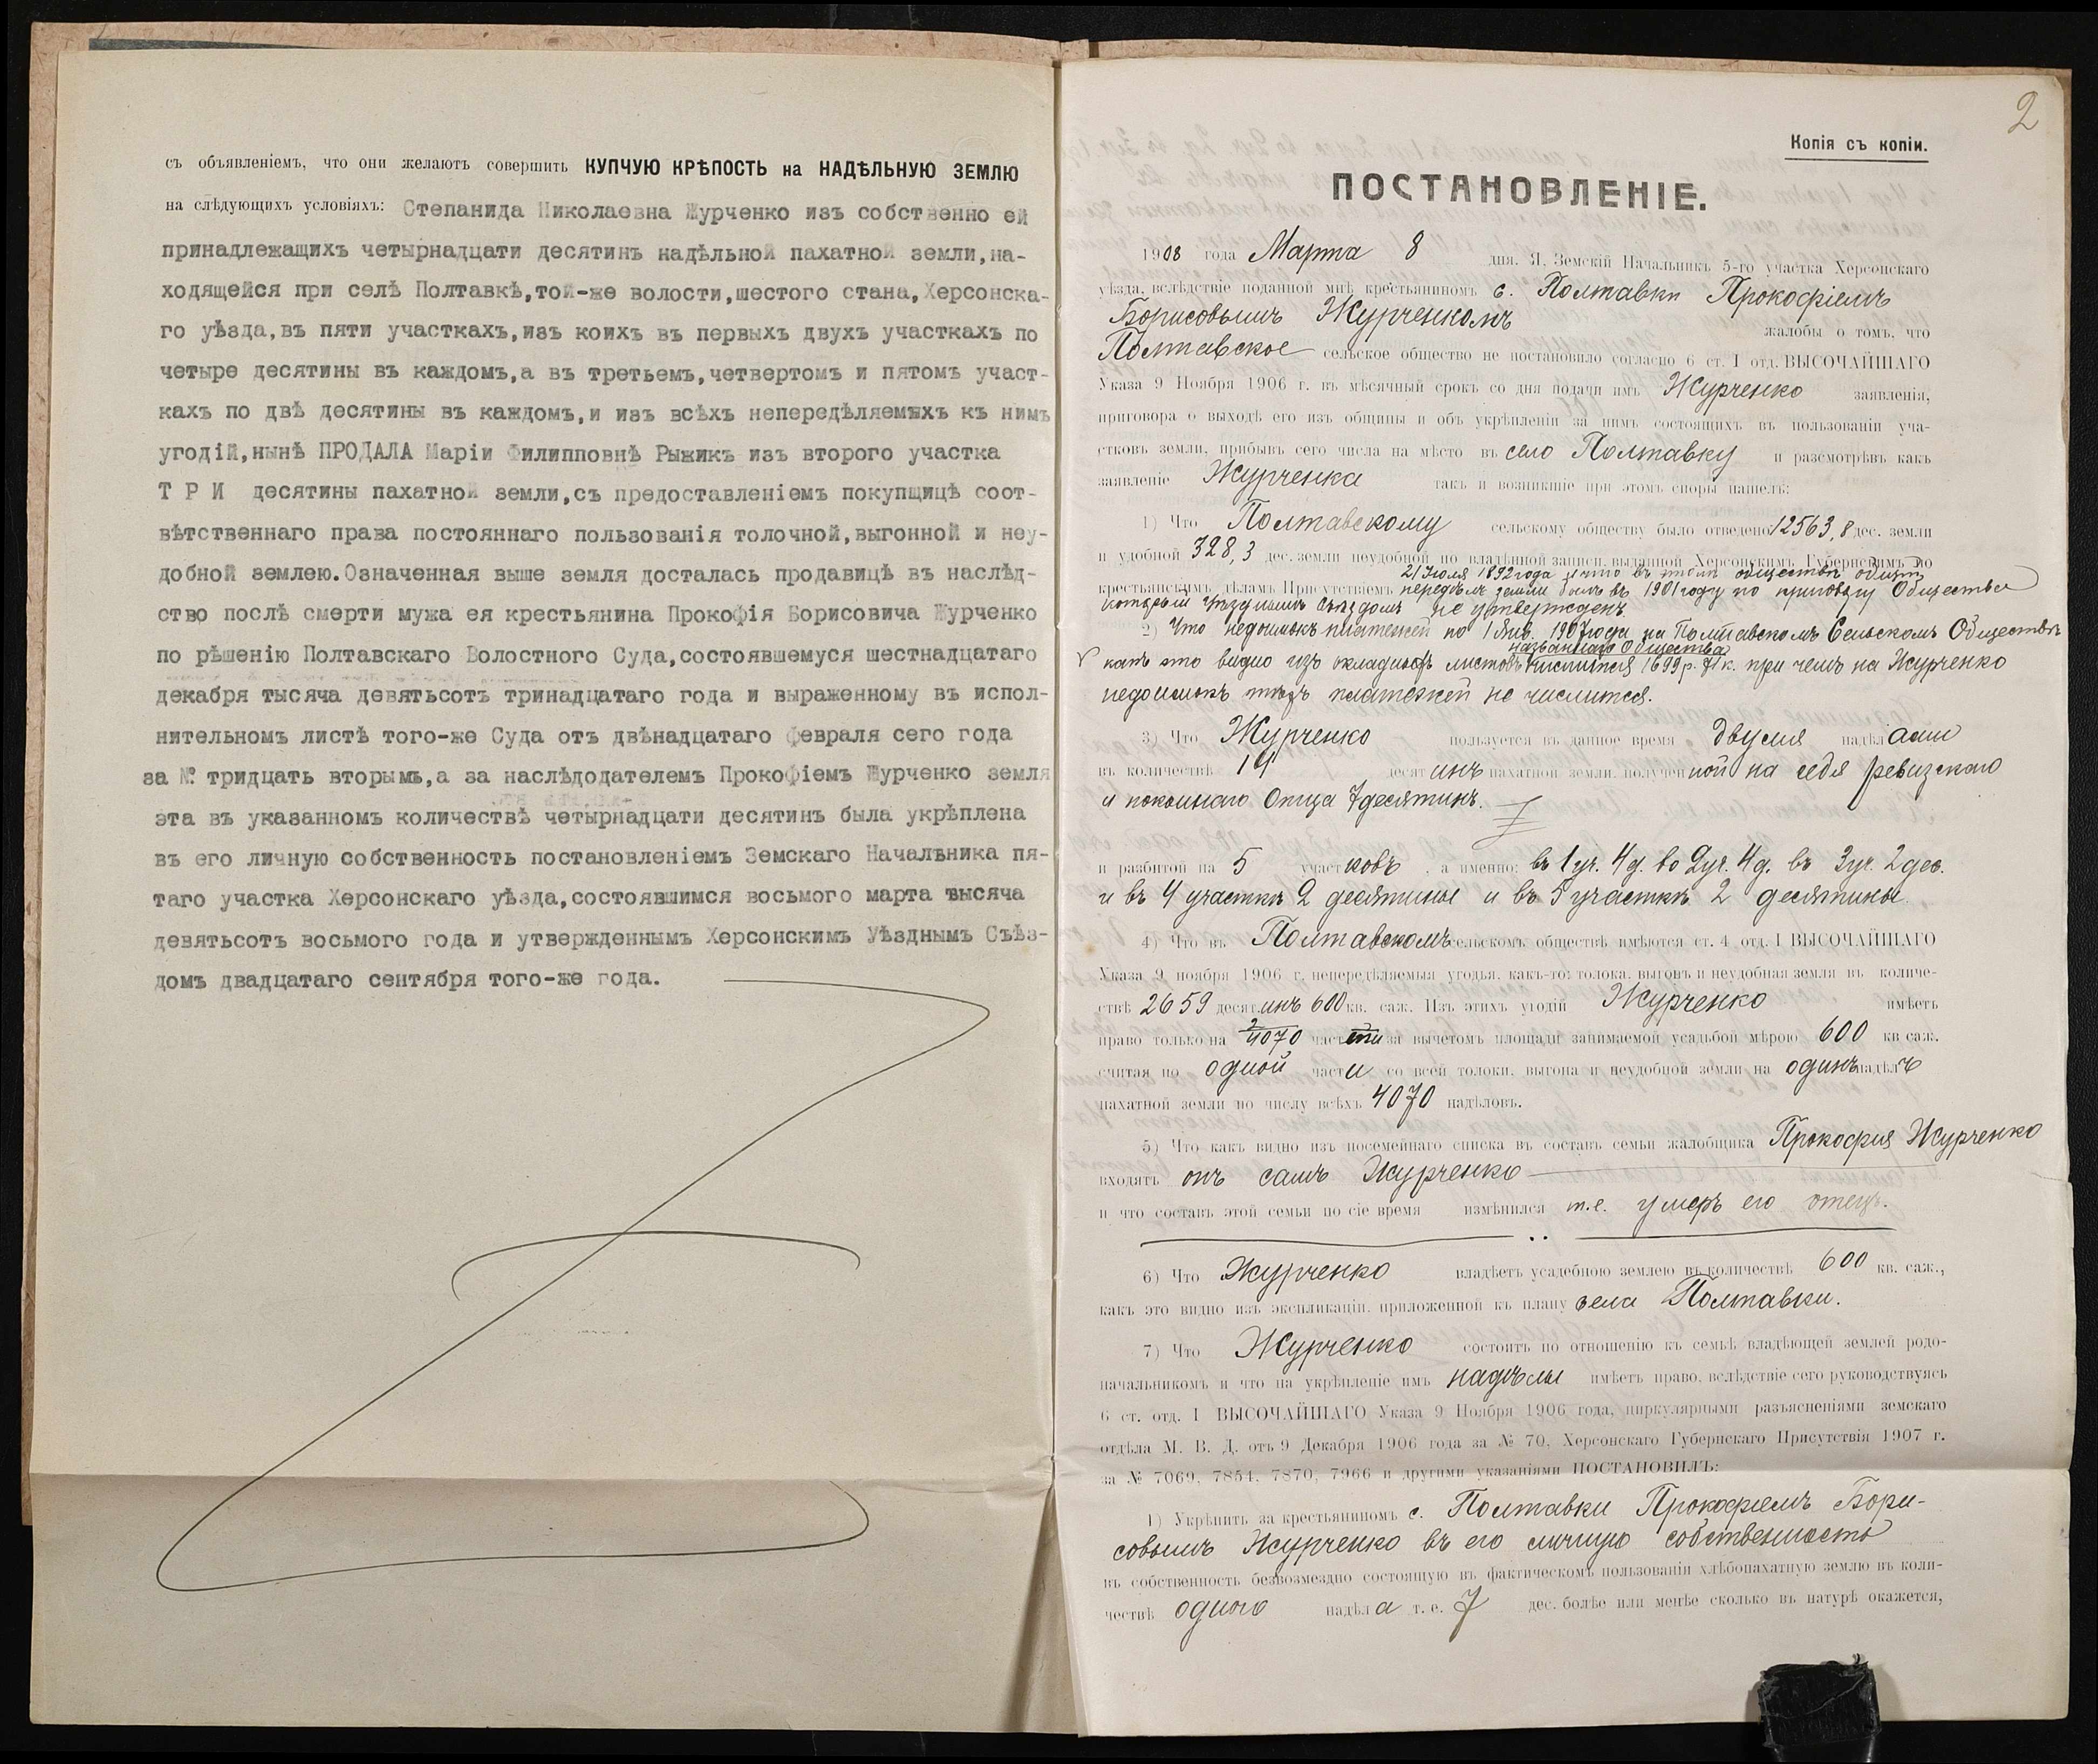 съ объявленіемъ, что они желаютъ совершить КУПЧУЮ КРѢПОСТЬ на НАДѢЛЬНУЮ ЗЕМЛЮ
на слѣдующихъ условіяхъ: Степанида Николаевна Журченко изъ собственно ей
принадлежащихъ четырнадцати десятинъ надѣльной пахатной земли,на-
ходящейся при селѣ Полтавкѣ,той-же волости,шестого стана,Херсонска-
го уѣзда,въ пяти участкахъ,изъ коихъ въ первыхъ двухъ участкахъ по
четыре десятины въ каждомъ,а въ третьемъ,четвертомъ и пятомъ участ-
кахъ по двѣ десятины въ каждомъ,и изъ всѣхъ непередѣляемыхъ къ нимъ
угодій,нынѣ ПРОДАЛА Маріи Филипповнѣ Рыжикъ изъ второго участка
Т Р И десятины пахатной земли,съ предоставленіемъ покупщицѣ соот-
вѣтственнаго права постояннаго пользованія толочной,выгонной и неу-
добной землею.Означенная выше земля досталась продавицѣ въ наслѣд-
ство послѣ смерти мужа ея крестьянина Прокофія Борисовича Журченко
по рѣшенію Полтавскаго Волостного Суда,состоявшемуся шестнадцатаго
декабря тысяча девятьсотъ тринадцатаго года и выраженному въ испол-
нительномъ листѣ того-же Суда отъ двѣнадцатаго февраля сего года
за № тридцать вторымъ,а за наслѣдодателемъ Прокофіемъ Журченко земля
эта въ указанномъ количествѣ четырнадцати десятинъ была укрѣплена
въ его личную собственность постановленіемъ Земскаго Начальника пя-
таго участка Херсонскаго уѣзда,состоявшимся восьмого марта тысяча
девятьсотъ восьмого года и утвержденнымъ Херсонскимъ Уѣзднымъ Съѣз-
домъ двадцатаго сентября того-же года.
2
Копія съ копіи.
ПОСТАНОВЛЕНІЕ.
1908 года Марта 8 дня. Я, Земскій Начальникъ 5-го участка Херсонскаго
уѣзда, вслѣдствіе поданной мнѣ крестьяниномъ с. Полтавки Прокофіемъ
Борисовымъ Журченкомъ жалобы о томъ, что
Полтавское сельское общество не постановило согласно 6 ст. I отд. ВЫСОЧАЙШАГО
Указа 9 Ноября 1906 г. въ мѣсячный срокъ со дня подачи имъ Журченко заявленія,
приговора о выходѣ его изъ общины и объ укрѣпленіи за нимъ состоящихъ въ пользованіи уча-
стковъ земли, прибывъ сего числа на мѣсто въ село Полтавку и разсмотрѣвъ какъ
заявленіе Журченка такъ и возникшіе при этомъ споры нашелъ:
1) Что Полтавскому сельскому обществу было отведено 12563,8 дес. земли
и удобной 328,3 дес. земли неудобной по владѣнной записи, выданной Херсонскимъ Губернскимъ по
21 Іюля 1892 года и что въ этомъ обществѣ общій
крестьянскимъ дѣламъ Присутствіемъ передѣлъ земли былъ въ 1901 году по приговору Общества
который Уѣзднымъ Съѣздомъ не утвержденъ.
2) Что недоимокъ платежей по 1 Янв. 1907 года на Полтавскомъ Сельскомъ Обществѣ
названнаго Общества
какъ это видно изъ окладныхъ листовъ числится 1699 р. 71 к. при чемъ на Журченко
недоимокъ платежей не числится.
3) Что Журченко пользуется въ данное время двумя надѣлами
въ количествѣ 14 десятинъ пахатной земли, полученной на себя ревизскаго
и покойнаго Отца 7 десятинъ.
и разбитой на 5 участковъ, а именно: въ 1 уч. 4 д. во 2 уч. 4 д. въ 3 уч. 2 дес.
и въ 4 участкѣ 2 десятины и въ 5 участкѣ 2 десятины.
4) Что въ Полтавскомъ сельскомъ обществѣ имѣются ст. 4 отд. I ВЫСОЧАЙШАГО
Указа 9 ноября 1906 г. непередѣляемыя угодья, какъ-то: толока, выгонъ и неудобная земля въ количе-
ствѣ 2659 десятинъ 600 кв. саж. Изъ этихъ угодій Журченко имѣетъ
право только на 2/4070 части за вычетомъ площади занимаемой усадьбой мѣрою 600 кв. саж.
считая по одной части со всей толоки, выгона и неудобной земли на одинъ надѣлъ
пахатной земли по числу всѣхъ 4070 надѣловъ.
5) Что какъ видно изъ посемейнаго списка въ составъ семьи жалобщика Прокофія Журченко
входятъ онъ самъ Журченко
и что составъ этой семьи по сіе время измѣнился т.е. умеръ его отецъ.
6) Что Журченко владѣетъ усадебною землею въ количествѣ 600 кв. саж.,
какъ это видно изъ экспликаціи, приложенной къ плану села Полтавки.
7) Что Журченко состоитъ по отношенію къ семьѣ владѣющей землей родо-
начальникомъ и что на укрѣпленіе имъ надѣлы имѣетъ право, вслѣдствіе сего руководствуясь
6 ст. отд. I ВЫСОЧАЙШАГО Указа 9 Ноября 1906 года, циркулярными разъясненіями земскаго
отдѣла М. В. Д. отъ 9 Декабря 1906 года за № 70, Херсонскаго Губернскаго Присутствія 1907 г.
за № 7069, 7854, 7870, 7966 и другими указаніями ПОСТАНОВИЛЪ:
1) Укрѣпить за крестьяниномъ с. Полтавки Прокофіемъ Бори-
совымъ Журченко въ его личную собственность
въ собственность безвозмездно состоящую въ фактическомъ пользованіи хлѣбопахатную землю въ коли-
чествѣ одного надѣла т. е. 7 дес. болѣе или менѣе сколько въ натурѣ окажется,